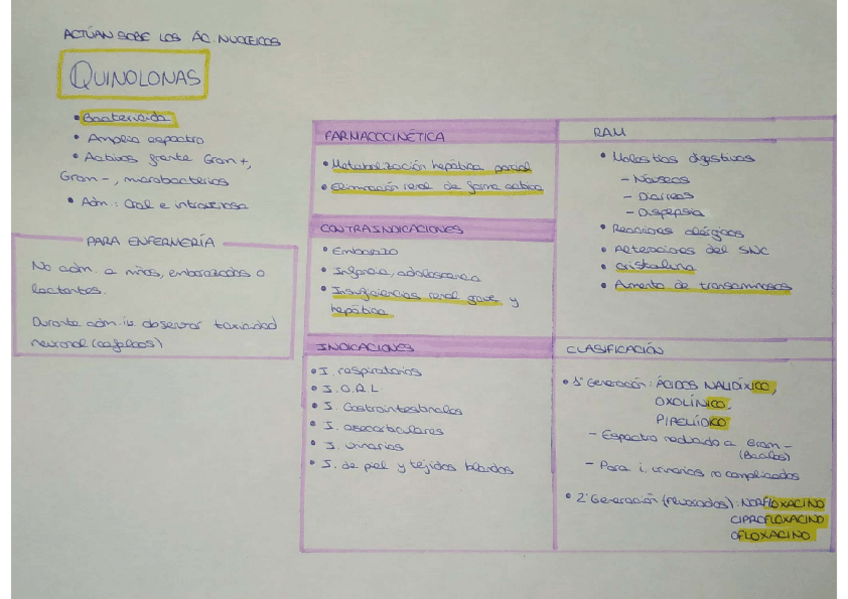 ACTÚAN SOBE LOS ÁC. NUCLEICOS
QUINOLONAS
• Bactericida
• Amplio espectro
• Activos frente Gram +,
Gram -, micobacterias
• Adm.: Oral e intravenosa
PARA ENFERMERÍA
No adm. a niños, embarazadas o
lactantes.
Durante adm. iv. observar toxicidad
neuronal (cefaleas)
FARMACOCINÉTICA
• Metabolización hepática parcial
• Eliminación renal de forma activa
CONTRAINDICACIONES
• Embarazo
• Infancia, adolescencia
• Insuficiencias renal grave y
hepática
INDICACIONES
• I. respiratorias
• I. O.R.L.
• I. Gastrointestinales
• I. oseoarticulares
• I. urinarias
• I. de piel y tejidos blandos
RAM
• Molestias digestivas
- Náuseas
- Diarreas
- Dispepsia
• Reacciones alérgicas
• Alteraciones del SNC
• Cristaluria
• Aumento de transaminasas
CLASIFICACIÓN
• 1ª Generación: ÁCIDOS NALIDÍXICO,
OXOLÍNICO,
- Espectro reducido a Gram -
(Bacilos)
- Para i. urinarias no complicadas
• 2ª Generación (fluoradas): NORFLOXACINO
CIPROFLOXACINO
OFLOXACINO